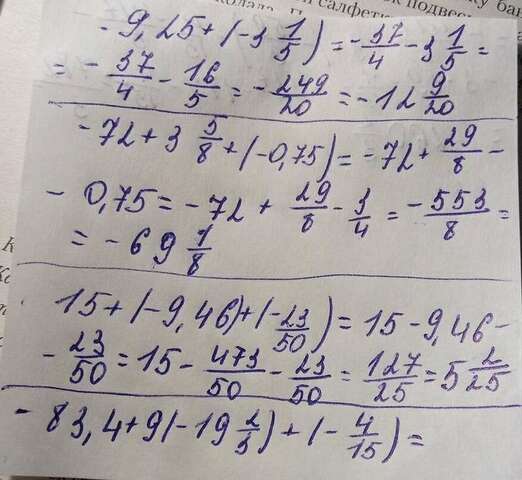 -9,25+(-3 1/5)=-37/4-3 1/5=
=-37/4-16/5=-249/20=-12 9/20
-72+3 5/8+(-0,75)=-72+29/8-
-0,75=-72+29/8-3/4=-553/8=
=-69 1/8
15+(-9,46)+(-23/50)=15-9,46-
-23/50=15-473/50-23/50=127/25=5 2/25
-83,4+9(-19 2/3)+(-4/15)=